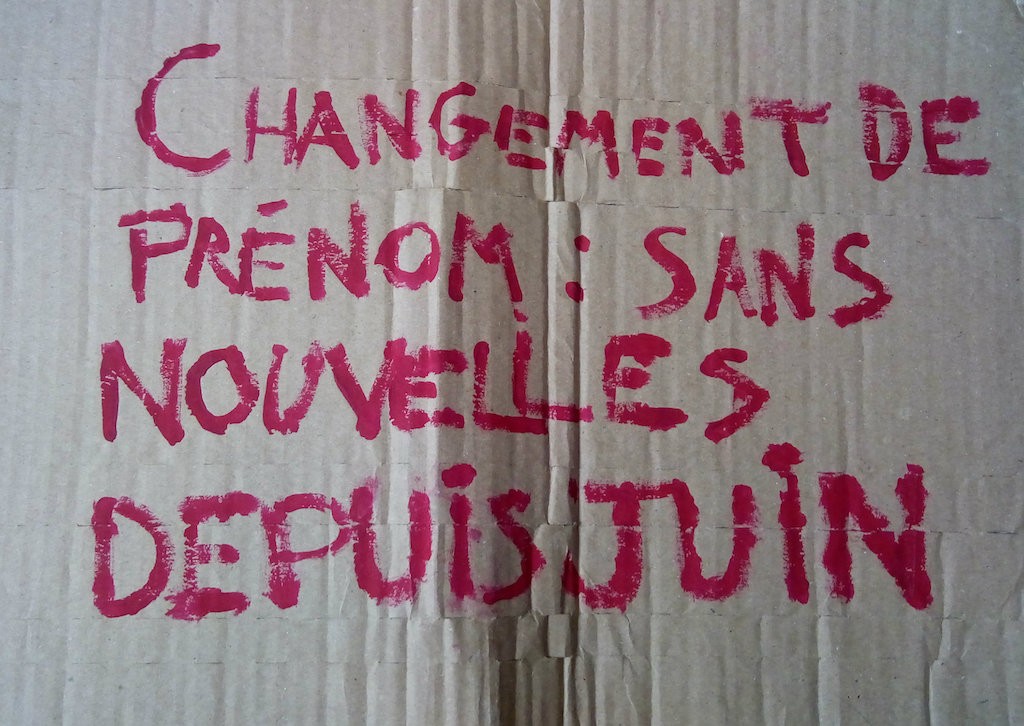 CHANGEMENT DE
PRÉNOM : SANS
NOUVELLES
DEPUIS JUIN